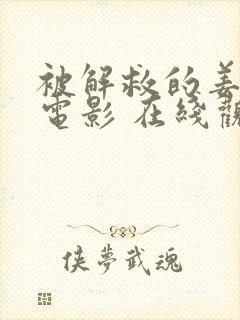 被解救的姜
電影 在綫觀
俠夢武魂